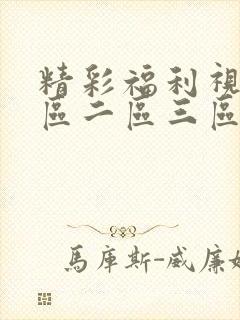 精彩福利視
區二區三區
馬庫斯-威廉